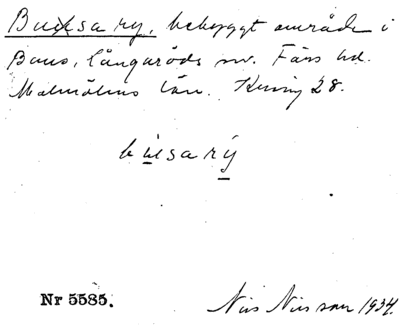 Buxsa ry, bebyggt område i
Baus, Långaröds sn. Färs hd.
Malmöhus län. Kuvig 28.
busarý
Nr 5585.
Nils Nilsson 1934.